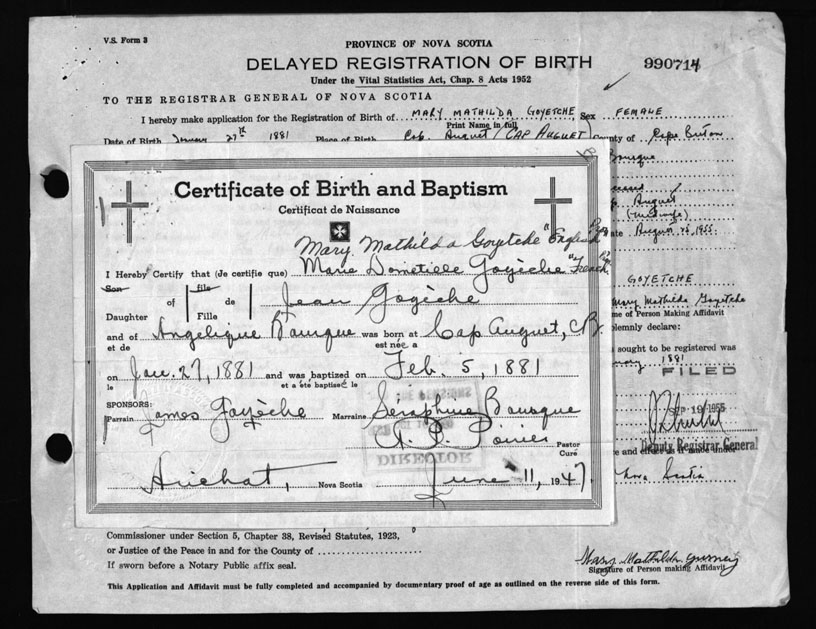 V.S. Form 3
PROVINCE OF NOVA SCOTIA
DELAYED REGISTRATION OF BIRTH
990714
Under the Vital Statistics Act, Chap. 8 Acts 1952
TO THE REGISTRAR GENERAL OF NOVA SCOTIA
I hereby make application for the Registration of Birth of MARY MATHILDA GOYETCHE Sex FEMALE
Print Name in full
Date of Birth January 27th 1881 Place of Birth Cap August / CAP AUGUET County of Cape Breton
Certificate of Birth and Baptism
Certificat de Naissance
Mary Mathilda Goyetche "English
I Hereby Certify that (de certifie que) Marie Dometille Goyèche "French
Son of file de Jean Goyèche
Daughter Fille
and of Angelique Bourque was born at Cap August, C.B.
et de est née a
on Jan. 27, 1881 and was baptized on Feb. 5, 1881
le et a été baptisé le
SPONSORS:
Parrain James Goyèche Marraine Séraphine Bourque
A. P. Poirier Pastor
Curé
DIRECTOR
Arichat, Nova Scotia June 11, 1947
Bourque
August
(midwife)
August 26, 1955
GOYETCHE
Mary Mathilda Goyetche
me of Person Making Affidavit
olemnly declare:
sought to be registered was
1881
FILED
SEP 19 1955
Deputy Registrar General
e and effect as if made under
Nova Scotia
Commissioner under Section 5, Chapter 38, Revised Statutes, 1923,
or Justice of the Peace in and for the County of
If sworn before a Notary Public affix seal.
Mary Mathilda Gurney
Signature of Person making Affidavit
This Application and Affidavit must be fully completed and accompanied by documentary proof of age as outlined on the reverse side of this form.